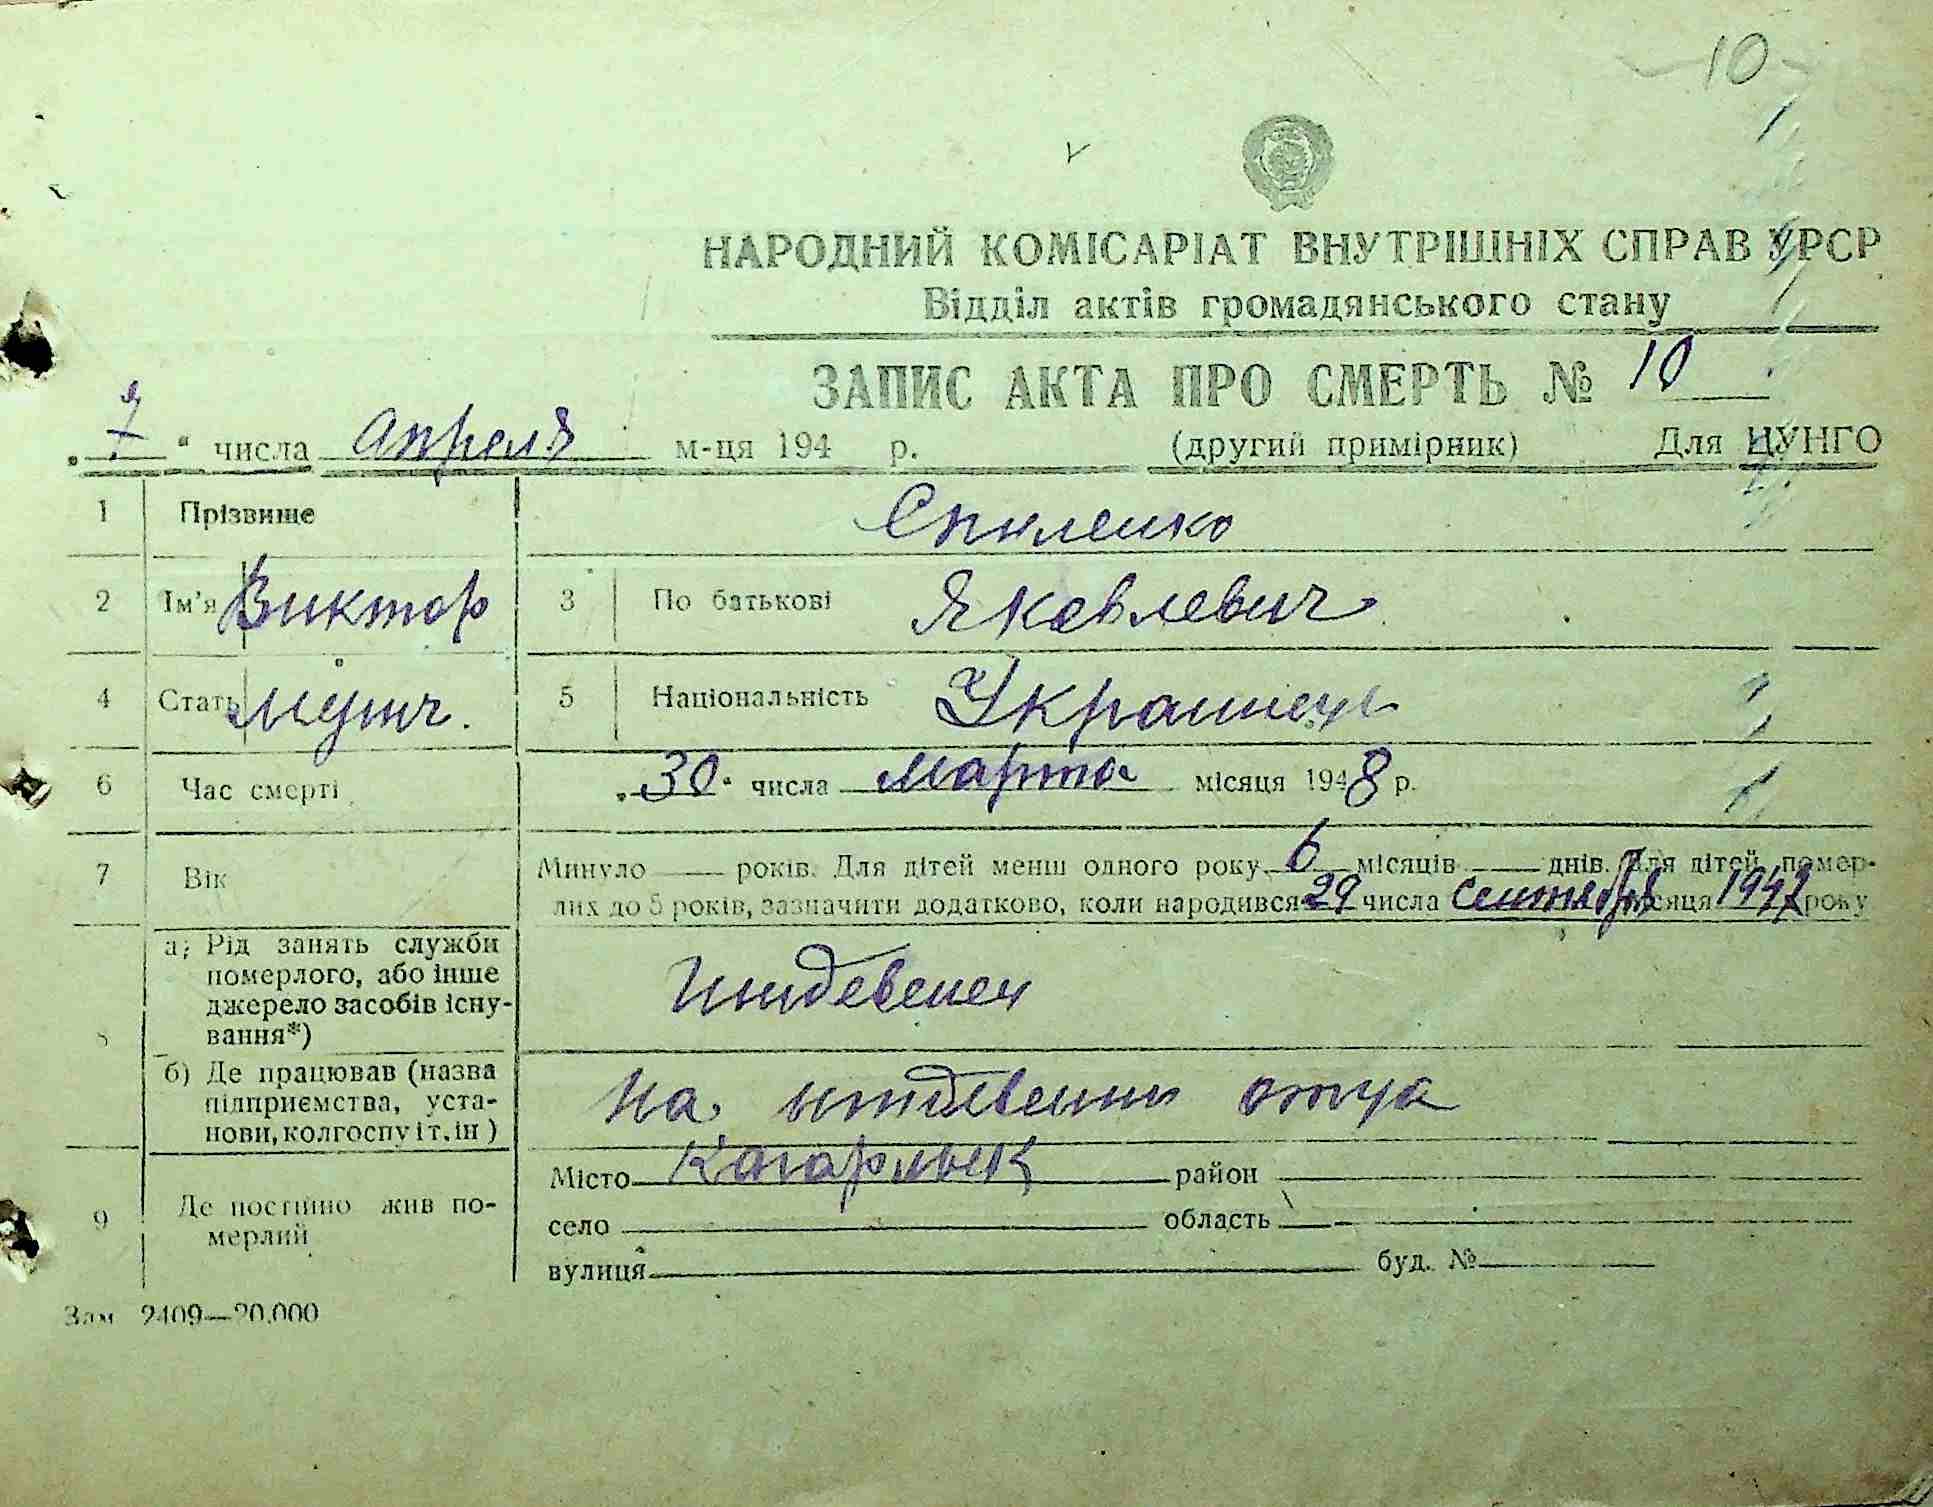 10
НАРОДНИЙ КОМІСАРІАТ ВНУТРІШНІХ СПРАВ УРСР
Відділ актів громадянського стану
ЗАПИС АКТА ПРО СМЕРТЬ № 10
„7“ числа апреля м-ця 194 р. (другий примірник) Для ЦУНГО
1 Прізвище Спиленко
2 Ім'я Виктор 3 По батькові Яковлевич
4 Стать мужч. 5 Національність Украинец
6 Час смерті „30“ числа марта місяця 1948 р.
7 Вік Минуло — років. Для дітей менш одного року 6 місяців — днів. Для дітей помер-
лих до 5 років, зазначити додатково, коли народився 29 числа сентября місяця 1947 року
8 а) Рід занять служби
померлого, або інше
джерело засобів існу-
вання*) Иждевенец
б) Де працював (назва
підприємства, уста-
нови, колгоспу і т. ін) На иждевении отца
9 Де постійно жив по-
мерлий
Місто Кагарлык район
село область
вулиця буд. №
Зам 2409—20.000